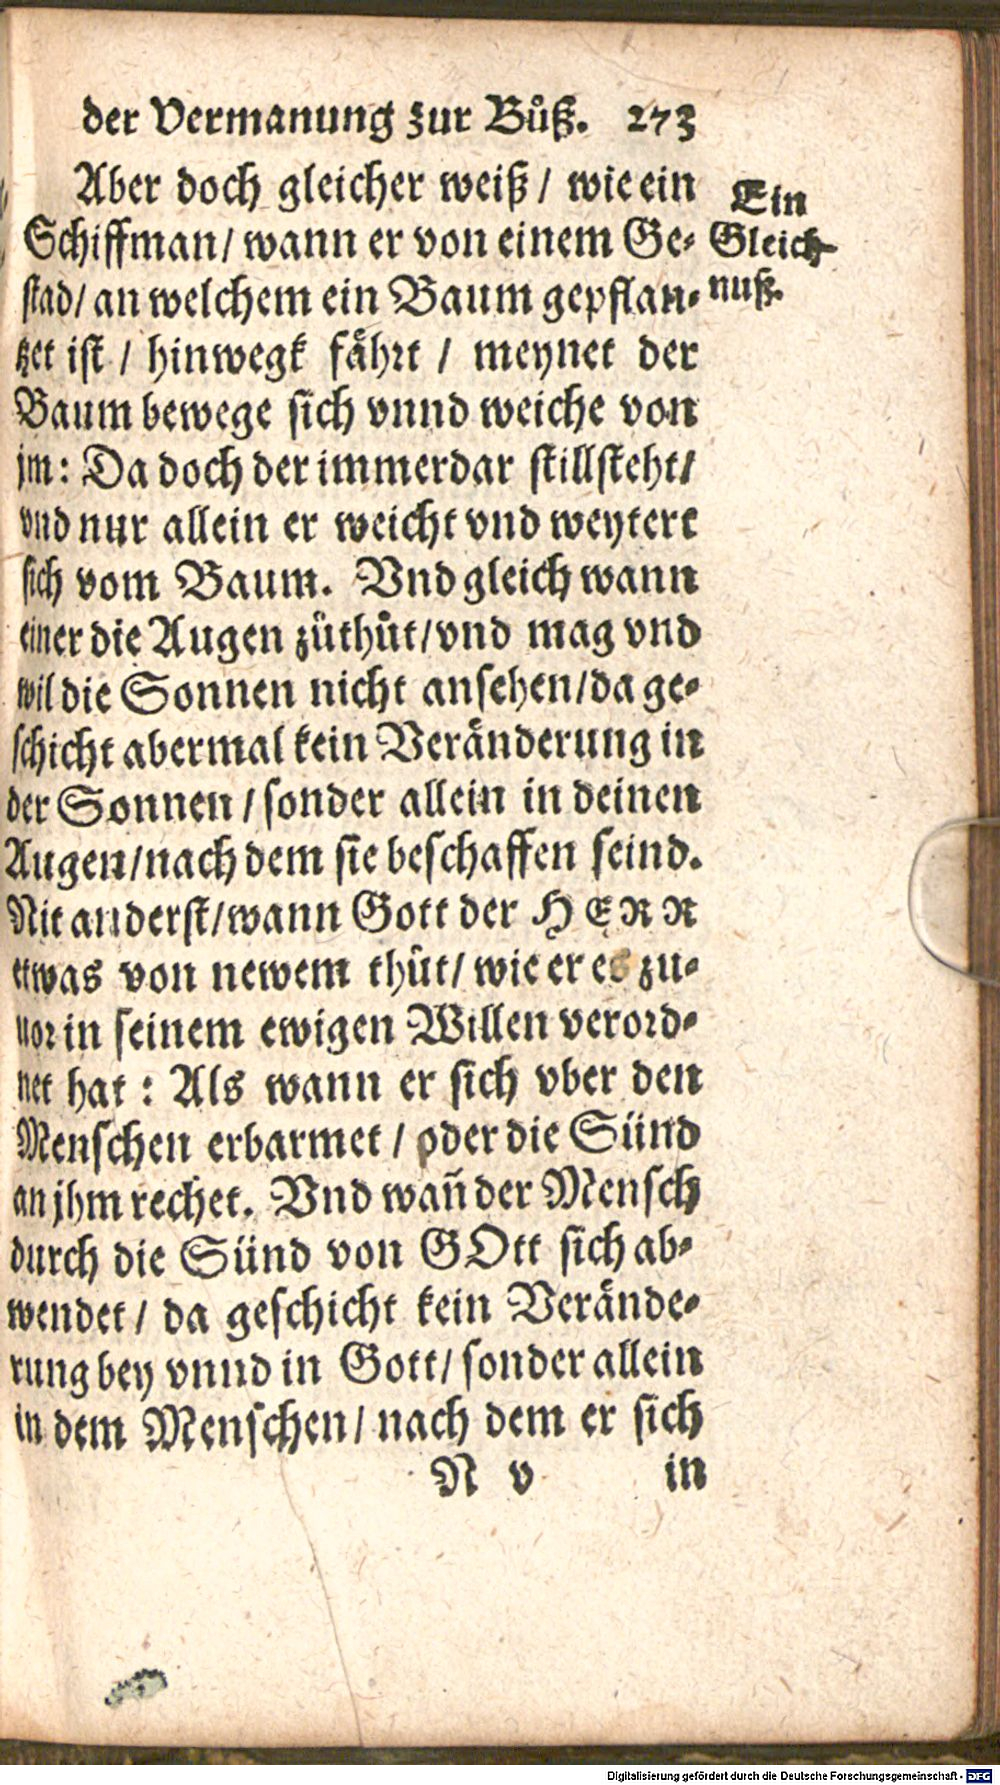 der Vermanung zur Bůß. 273
Aber doch gleicher weiß / wie ein
Schiffman / wann er von einem Ge-
stad / an welchem ein Baum gepflan-
tzet ist / hinwegk fährt / meynet der
Baum bewege sich vnnd weiche von
jm: Da doch der immerdar stillsteht /
vnd nur allein er weicht vnd weytert
sich vom Baum. Vnd gleich wann
einer die Augen zůthůt / vnd mag vnd
wil die Sonnen nicht ansehen / da ge-
schicht abermal kein Veränderung in
der Sonnen / sonder allein in deinen
Augen / nach dem sie beschaffen seind.
Nit anderst / wann Gott der HERR
etwas von newem thůt / wie er es zu-
uor in seinem ewigen Willen verord-
net hat: Als wann er sich vber den
Menschen erbarmet / oder die Sünd
an jhm rechet. Vnd wañ der Mensch
durch die Sünd von GOtt sich ab-
wendet / da geschicht kein Verände-
rung bey vnnd in Gott / sonder allein
in dem Menschen / nach dem er sich
N v in
Ein
Gleich-
nuß.
Digitalisierung gefördert durch die Deutsche Forschungsgemeinschaft - DFG